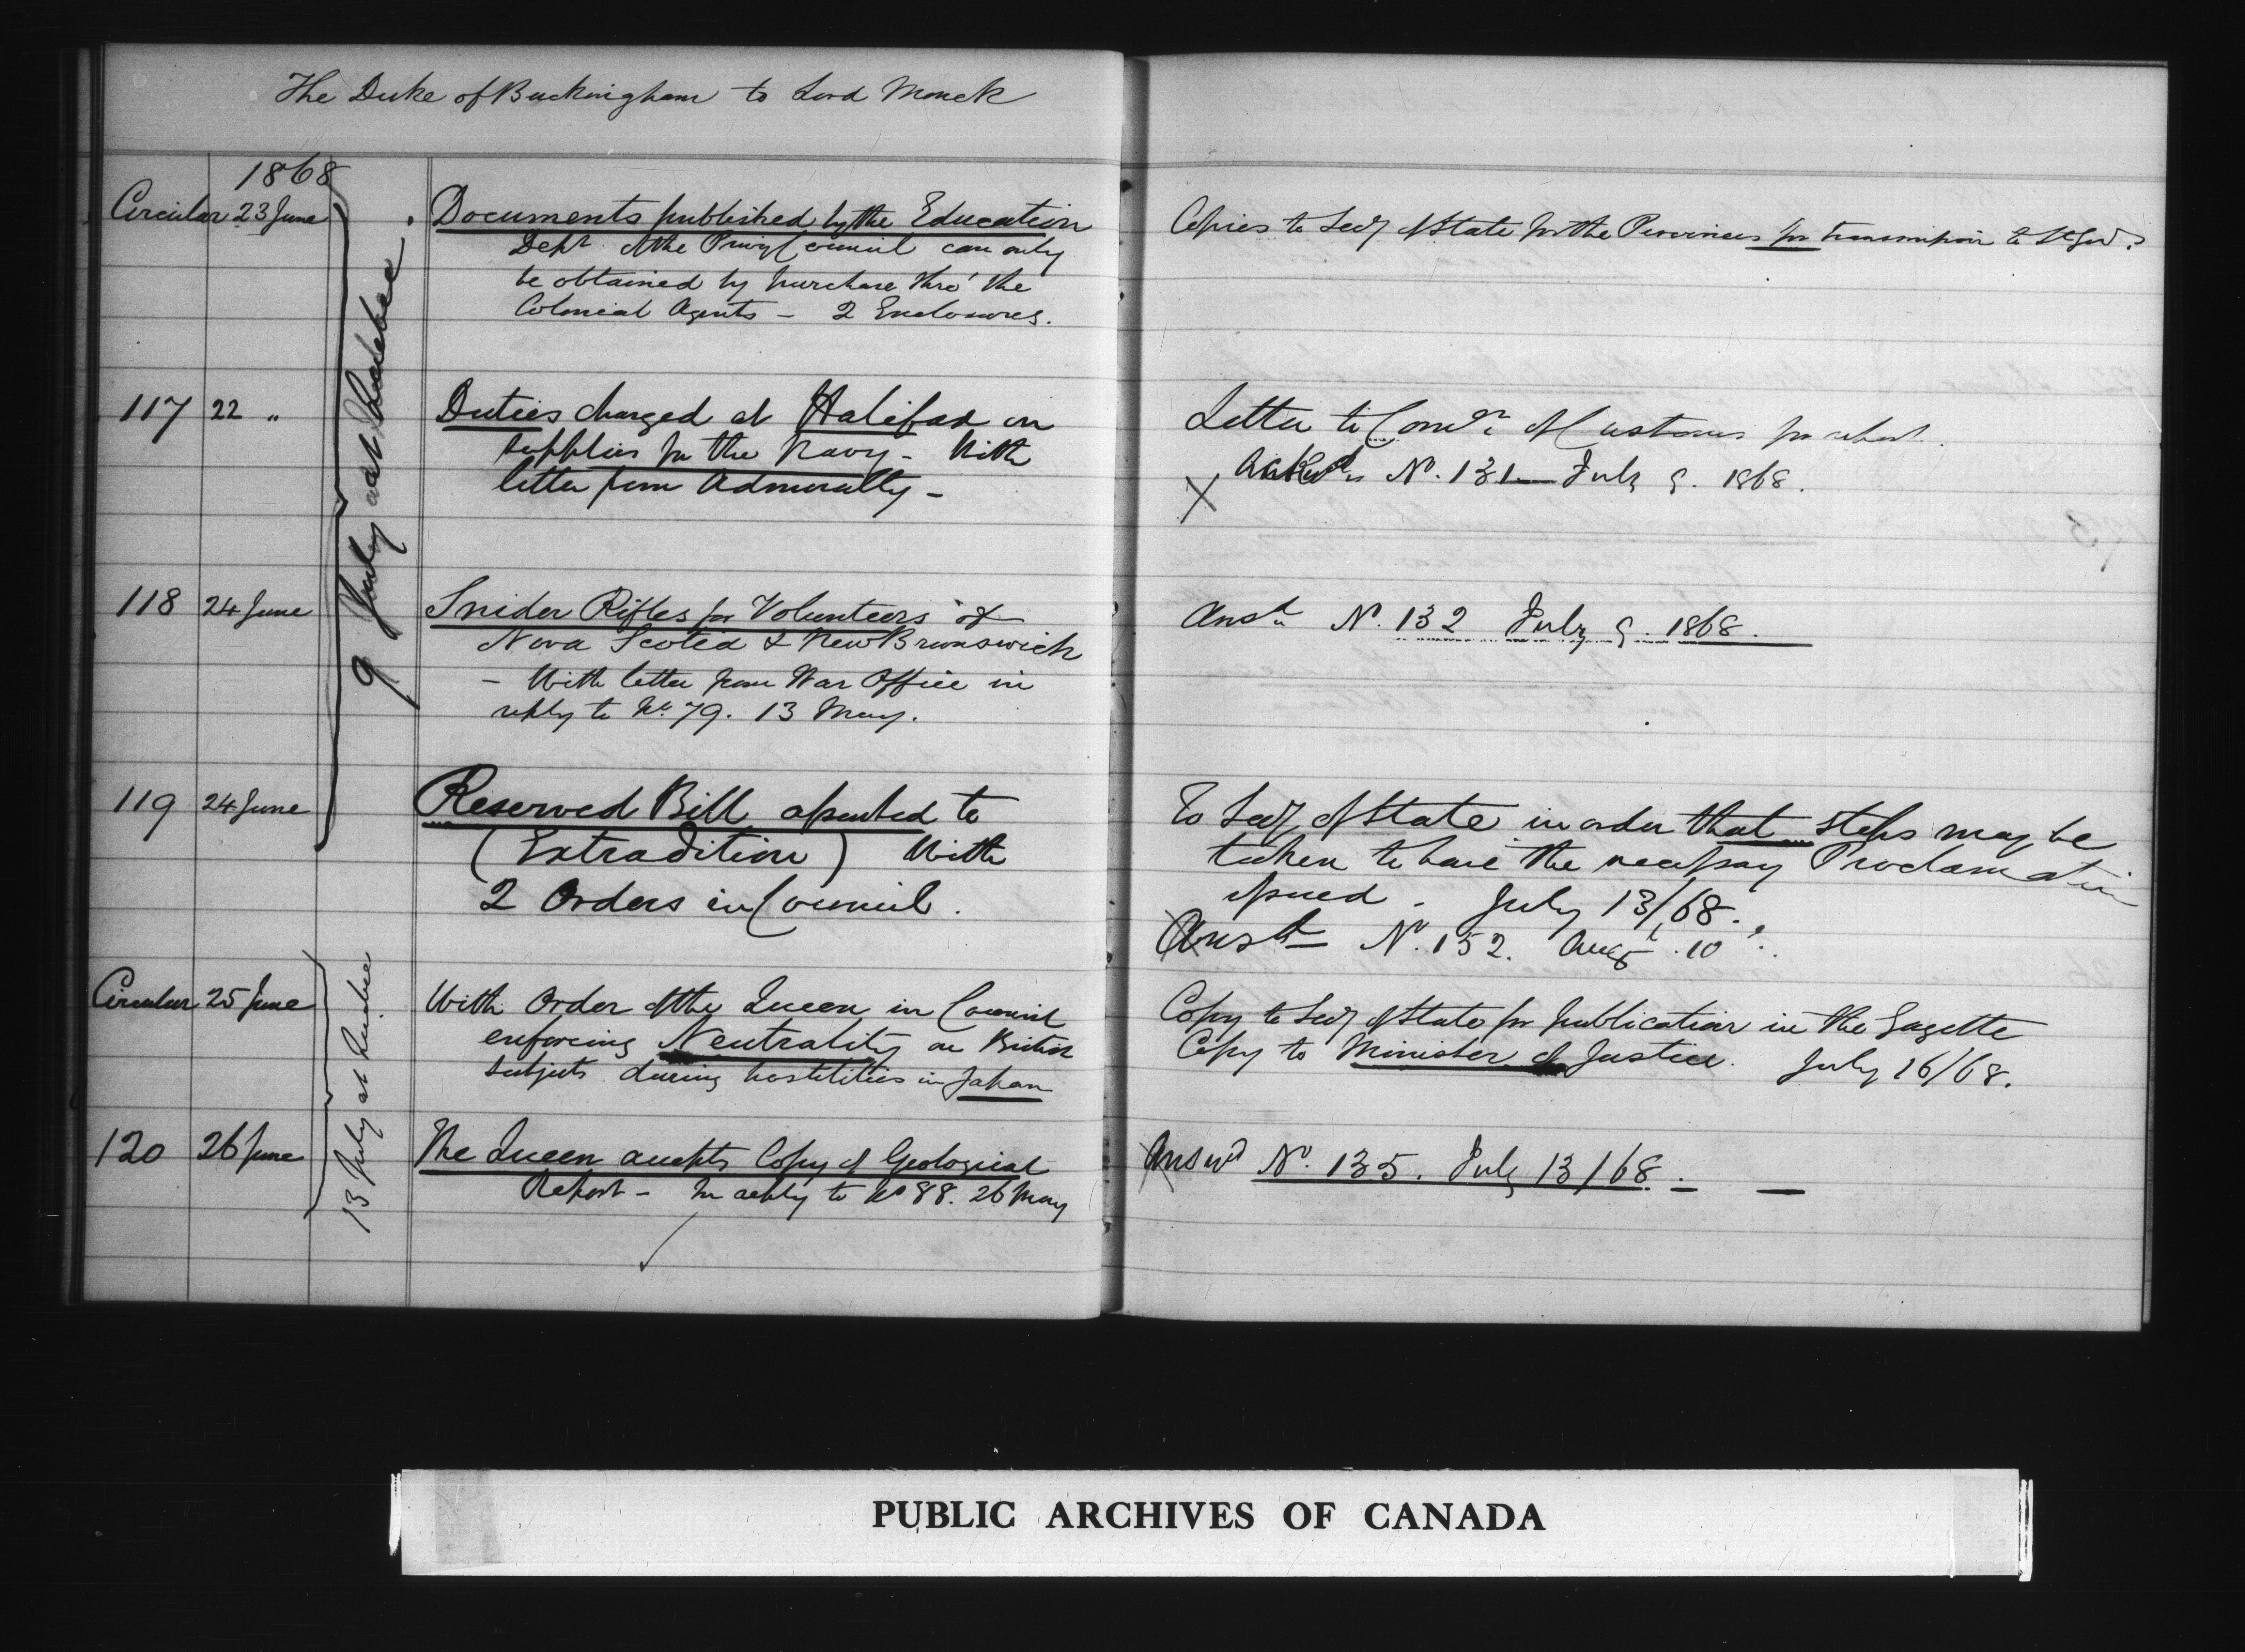 The Duke of Buckingham to Lord Monck
1868
Circular 23 June
Documents published by the Education
Dept of the Privy Council can only
be obtained by purchase thro' the
Colonial Agents - 2 Enclosures.
Copies to Secy of State for the Provinces for transmission to Lt Govs.
9 July at Quebec
117 22 "
Duties charged at Halifax on
supplies for the Navy - With
letter from Admiralty -
Letter to Comr of Customs for report.
X Ackd in No. 131 - July 9. 1868.
118 24 June
Snider Rifles for Volunteers of
Nova Scotia & New Brunswick
- With letter from War Office in
reply to No. 79. 13 May.
Ansd No. 132 July 9. 1868.
119 24 June
Reserved Bill assented to
(Extradition) With
2 Orders in Council.
To Secy of State in order that steps may be
taken to have the necessary Proclamation
issued - July 13/68.
Ansd No. 152. Augt. 10.
13 July at Quebec
Circular 25 June
With Order of the Queen in Council
enforcing Neutrality on British
subjects during hostilities in Japan
Copy to Secy of State for publication in the Gazette
Copy to Minister of Justice. July 16/68.
120 26 June
The Queen accepts Copy of Geological
Report - In reply to No 88. 26 May
Answd No. 135. July 13/68. - -
PUBLIC ARCHIVES OF CANADA